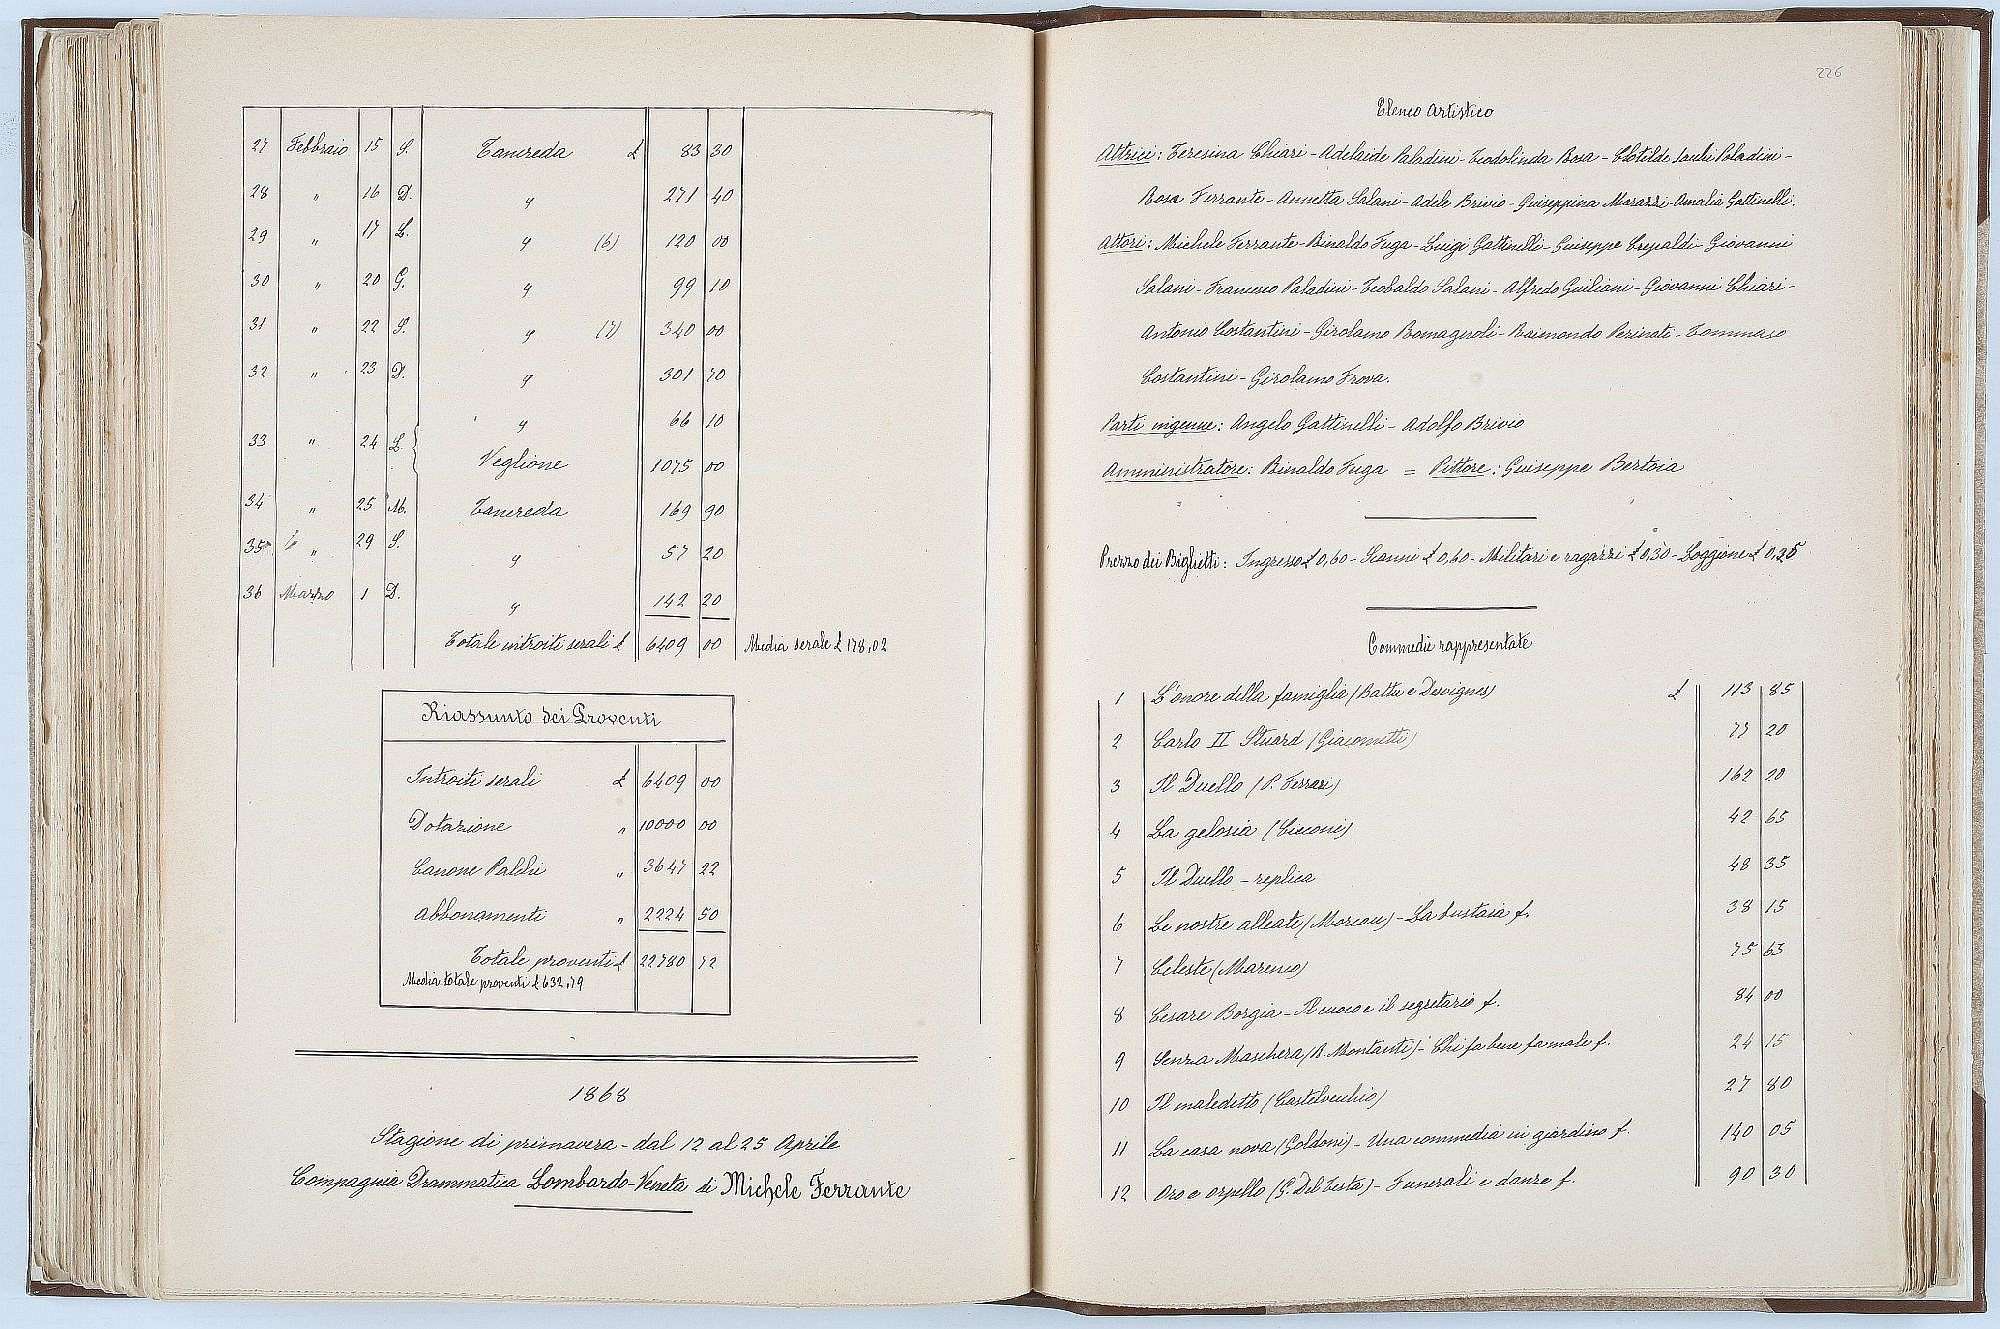 27 Febbraio 15 S. Tancreda £ 83 30
28 " 16 D. " 271 40
29 " 17 L. " (6) 120 00
30 " 20 G. " 99 10
31 " 22 S. " (7) 340 00
32 " 23 D. " 301 70
" 66 10
33 " 24 L.
Veglione 1075 00
34 " 25 M. Tancreda 169 90
35 " 29 S. " 57 20
36 Marzo 1 D. " 142 20
Totale introiti serali £ 6409 00 Media serale £ 178,02
Riassunto dei Proventi
Introiti serali £ 6409 00
Dotazione " 10000 00
Canone Palchi " 3647 22
Abbonamenti " 2224 50
Totale proventi £ 22780 72
Media totale proventi £ 632,79
1868
Stagione di primavera - dal 12 al 25 Aprile
Compagnia Drammatica Lombardo-Veneta di Michele Ferrante
226
Elenco Artistico
Attrici: Teresina Chiari - Adelaide Paladini - Teodolinda Rosa - Clotilde Paladini -
Rosa Ferrante - Annetta Salani - Adele Brivio - Guiseppina Marazzi - Amalia Gattinelli.
Attori: Michele Ferrante - Rinaldo Fuga - Luigi Gattinelli - Guiseppe Crepaldi - Giovanni
Salani - Francesco Paladini - Teobaldo Salani - Alfredo Guiliani - Giovanni Chiari -
Antonio Costantini - Girolamo Romagnoli - Raimondo Perinati - Tommaso
Costantini - Girolamo Frova.
Parti ingenue: Angelo Gattinelli - Adolfo Brivio
Amministratore: Rinaldo Fuga = Pittore: Guiseppe Bertoia
Prezzo dei Biglietti: Ingresso £ 0,60 - Scanni £ 0,60 - Militari e ragazzi £ 0,30 - Loggione £ 0,25
Commedie rappresentate
1 L'onore della famiglia (Battu e Desvignes) £ 113 85
2 Carlo II Stuard (Giacometti) 77 20
3 Il Duello (P. Ferrari) 162 20
4 La gelosia (Ciconi) 42 65
5 Il Duello - replica 48 35
6 Le nostre alleate (Moreau) - La bustaia f. 38 15
7 Celeste (Marenco) 75 63
8 Cesare Borgia - Il cuoco e il segretario f. 84 00
9 Senza Maschera (R. Montanti) - Chi fa bene fa male f. 24 15
10 Il maledetto (Castelvecchio) 27 80
11 La casa nova (Goldoni) - Una commedia in giardino f. 140 05
12 Oro e orpello (G. Del Testa) - Funerali e danze f. 90 30